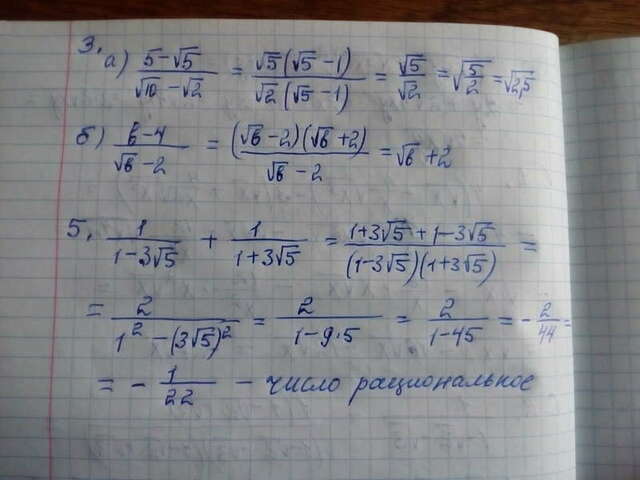 3. а) (5-√5)/(√10-√2) = (√5(√5-1))/(√2(√5-1)) = √5/√2 = √(5/2) = √2,5
б) (b-4)/(√b-2) = ((√b-2)(√b+2))/(√b-2) = √b+2
5. 1/(1-3√5) + 1/(1+3√5) = (1+3√5+1-3√5)/((1-3√5)(1+3√5)) =
= 2/(1²-(3√5)²) = 2/(1-9·5) = 2/(1-45) = -2/44 =
= -1/22 - число рациональное